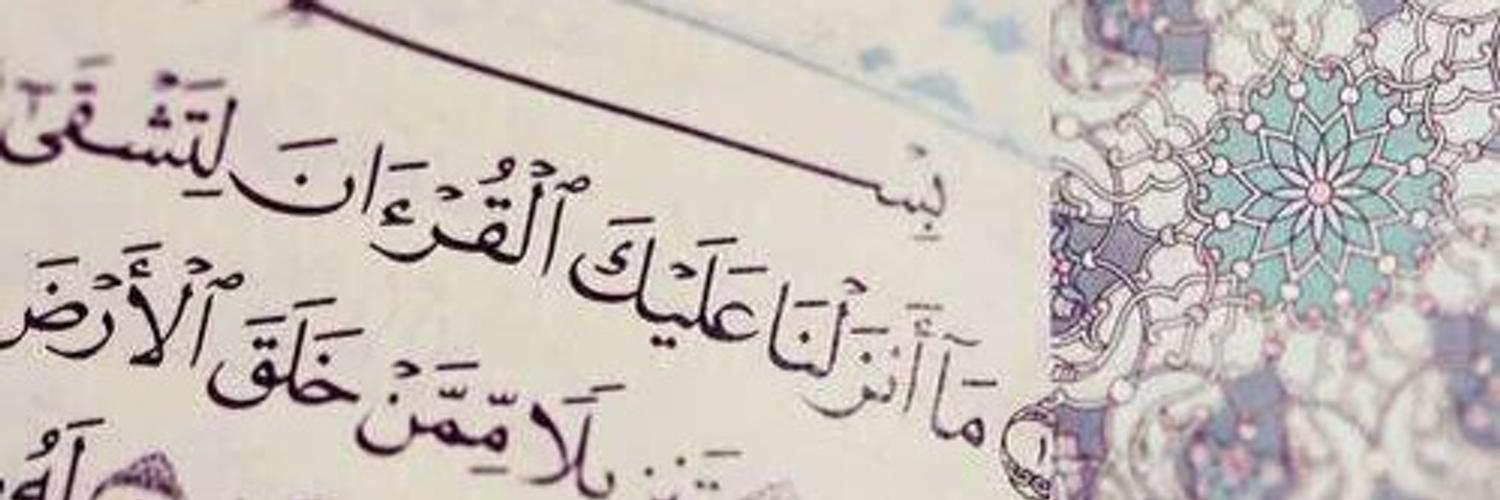 بِسْ
مَآ أَنزَلْنَا عَلَيْكَ ٱلْقُرْءَانَ لِتَشْقَىٰٓ
تَنزِيلًا مِّمَّنْ خَلَقَ ٱلْأَرْضَ